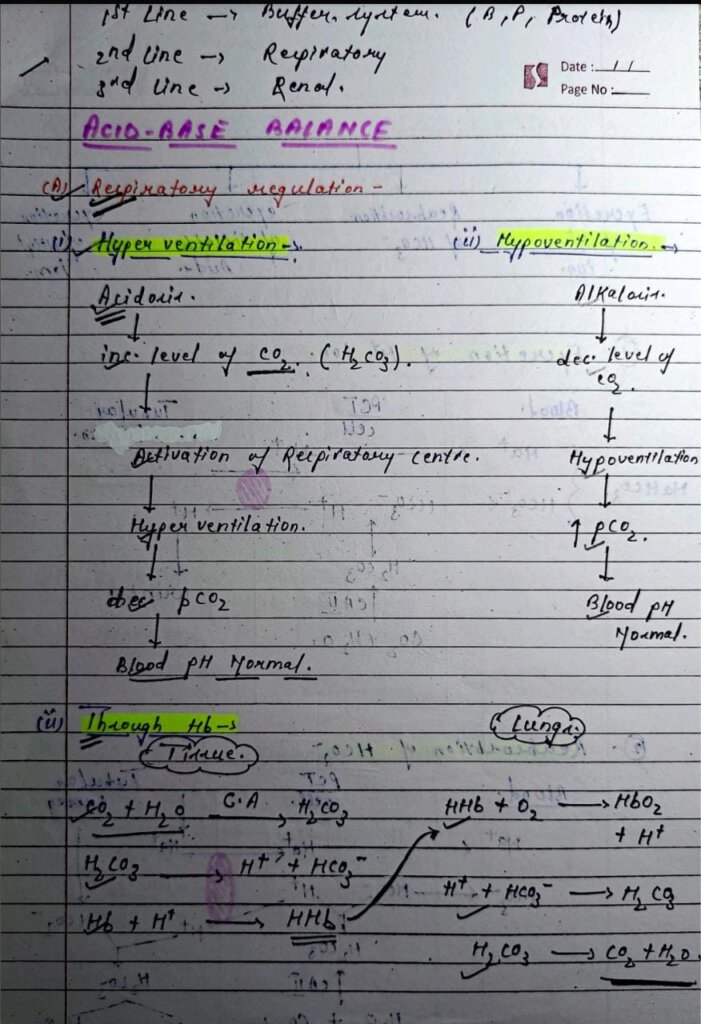 1st Line → Buffer system. (B, P, Protein)
2nd Line → Respiratory
3rd Line → Renal.
Date : / /
Page No :
ACID-BASE BALANCE
(A) Respiratory regulation -
(i) Hyper ventilation →
(ii) Hypoventilation. →
Acidosis.
↓
inc. level of CO2. (H2CO3).
↓
Activation of Respiratory centre.
↓
Hyper ventilation.
↓
dec pCO2
↓
Blood pH Normal.
Alkalosis.
↓
dec. level of
CO2.
↓
Hypoventilation
↓
↑ pCO2.
↓
Blood pH
Normal.
(ii) Through Hb →
Tissue.
CO2 + H2O —C.A→ H2CO3
H2CO3 → H+ + HCO3-
Hb + H+ → HHb
Lungs.
HHb + O2 → HbO2
+ H+
H+ + HCO3- → H2CO3
H2CO3 → CO2 + H2O.